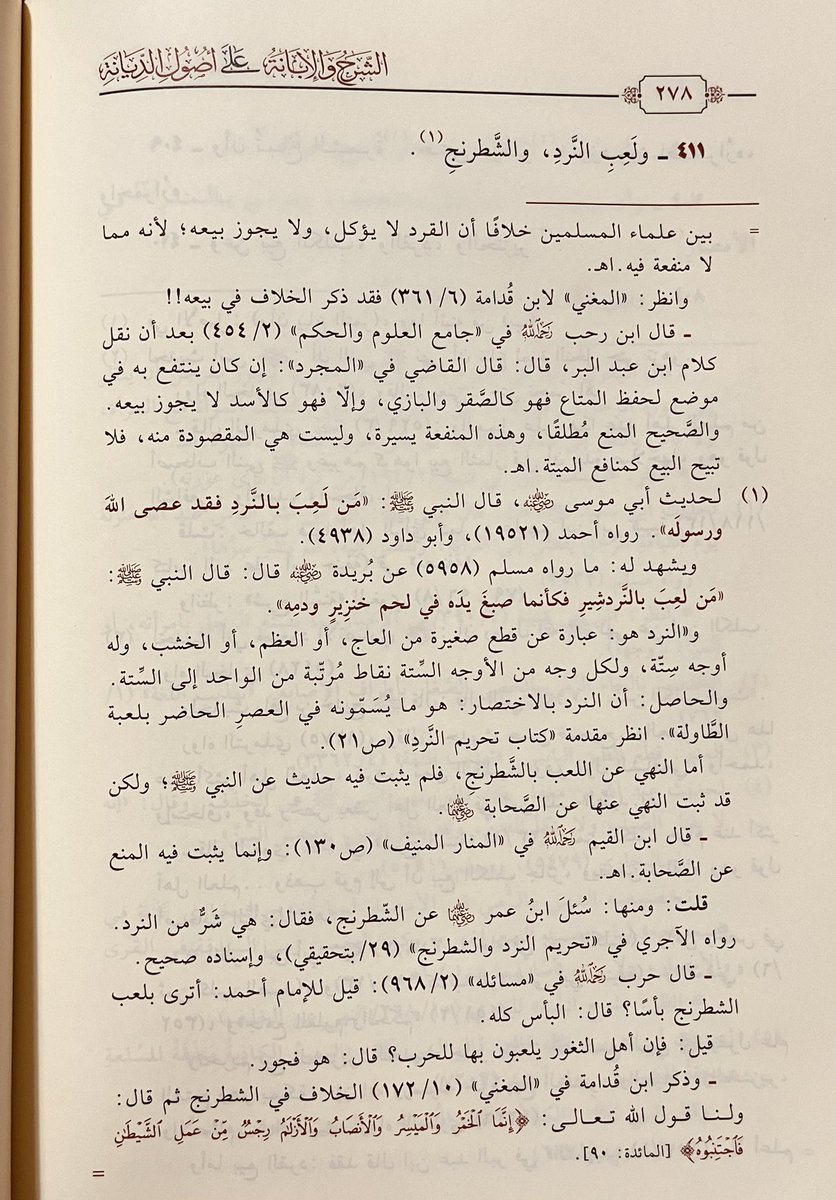 الشَّرحُ وَالإبَانَةُ عَلَى أُصُولِ الدِّيَانَةِ
٢٧٨
٤١١ ـ ولَعِبِ النَّردِ، والشَّطرنجِ(١).
= بين علماء المسلمين خلافًا أن القرد لا يؤكل، ولا يجوز بيعه؛ لأنه مما
لا منفعة فيه.اهـ.
وانظر: «المغني» لابن قُدامة (٣٦١/٦) فقد ذكر الخلاف في بيعه!!
ـ قال ابن رحب رَحِمَهُ اللهُ في «جامع العلوم والحكم» (٤٥٤/٢) بعد أن نقل
كلام ابن عبد البر، قال: قال القاضي في «المجرد»: إن كان ينتفع به في
موضع لحفظ المتاع فهو كالصَّقر والبازي، وإلّا فهو كالأسد لا يجوز بيعه.
والصَّحيح المنع مُطلقًا، وهذه المنفعة يسيرة، وليست هي المقصودة منه، فلا
تبيح البيع كمنافع الميتة.اهـ.
(١) لحديث أبي موسى رضي الله عنه، قال النبي ﷺ: «مَن لَعِبَ بالنَّردِ فقد عصى اللهَ
ورسولَه». رواه أحمد (١٩٥٢١)، وأبو داود (٤٩٣٨).
ويشهد له: ما رواه مسلم (٥٩٥٨) عن بُريدة رضي الله عنه قال: قال النبي ﷺ:
«مَن لعِبَ بالنَّردشِيرِ فكأنما صبغَ يدَه في لحم خنزِيرٍ ودمِه».
و«النرد هو: عبارة عن قطع صغيرة من العاج، أو العظم، أو الخشب، وله
أوجه سِتّة، ولكل وجه من الأوجه السِّتة نقاط مُرتّبة من الواحد إلى السِّتة.
والحاصل: أن النرد بالاختصار: هو ما يُسَمّونه في العصرِ الحاضر بلعبة
الطَّاولة». انظر مقدمة «كتاب تحريم النَّردِ» (ص٢١).
أما النهي عن اللعب بالشَّطرنج، فلم يثبت فيه حديث عن النبي ﷺ؛ ولكن
قد ثبت النهي عنها عن الصَّحابة رضي الله عنهم.
ـ قال ابن القيم رَحِمَهُ اللهُ في «المنار المنيف» (ص١٣٠): وإنما يثبت فيه المنع
عن الصَّحابة.اهـ.
قلت: ومنها: سُئلَ ابنُ عمر رضي الله عنهما عن الشّطرنج، فقال: هي شَرٌّ من النرد.
رواه الآجري في «تحريم النرد والشطرنج» (٢٩/بتحقيقي)، وإسناده صحيح.
ـ قال حرب رَحِمَهُ اللهُ في «مسائله» (٩٦٨/٢): قيل للإمام أحمد: أترى بلعب
الشطرنج بأسًا؟ قال: البأس كله.
قيل: فإن أهل الثغور يلعبون بها للحرب؟ قال: هو فجور.
ـ وذكر ابن قُدامة في «المغني» (١٧٢/١٠) الخلاف في الشطرنج ثم قال:
ولنا قول الله تعالى: ﴿إِنَّمَا الْخَمْرُ وَالْمَيْسِرُ وَالْأَنصَابُ وَالْأَزْلَامُ رِجْسٌ مِّنْ عَمَلِ الشَّيْطَانِ
فَاجْتَنِبُوهُ﴾ [المائدة: ٩٠].
=